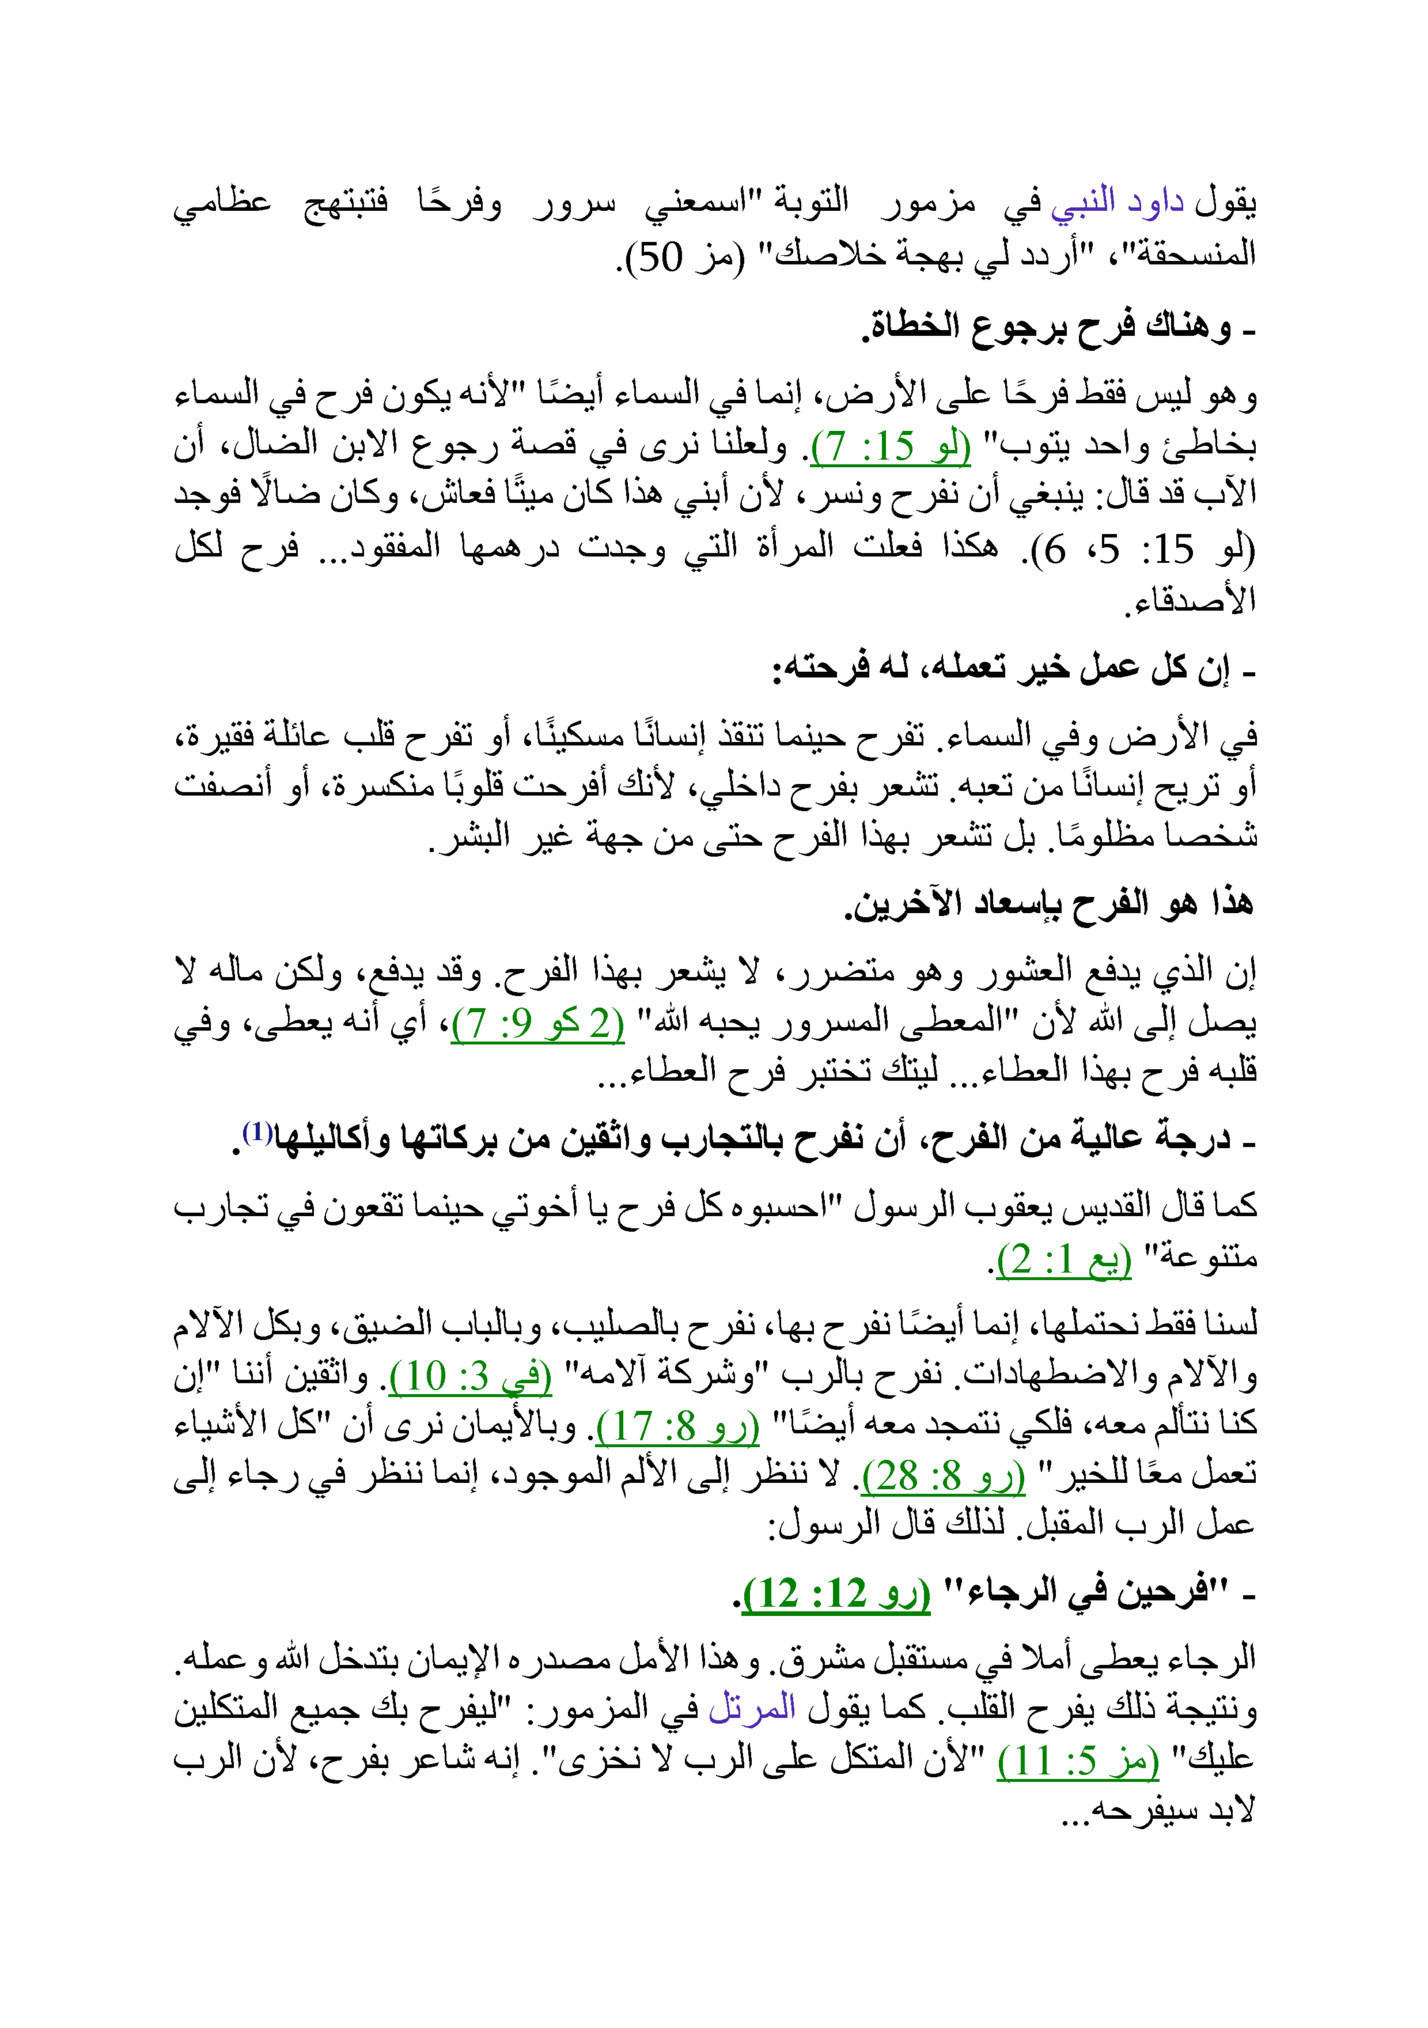 يقول داود النبي في مزمور التوبة "اسمعني سرور وفرحًا فتبتهج عظامي
المنسحقة"، "أردد لي بهجة خلاصك" (مز 50).
- وهناك فرح برجوع الخطاة.
وهو ليس فقط فرحًا على الأرض، إنما في السماء أيضًا "لأنه يكون فرح في السماء
بخاطئ واحد يتوب" (لو 15: 7). ولعلنا نرى في قصة رجوع الابن الضال، أن
الآب قد قال: ينبغي أن نفرح ونسر، لأن أبني هذا كان ميتًا فعاش، وكان ضالًا فوجد
(لو 15: 5، 6). هكذا فعلت المرأة التي وجدت درهمها المفقود... فرح لكل
الأصدقاء.
- إن كل عمل خير تعمله، له فرحته:
في الأرض وفي السماء. تفرح حينما تنقذ إنسانًا مسكينًا، أو تفرح قلب عائلة فقيرة،
أو تريح إنسانًا من تعبه. تشعر بفرح داخلي، لأنك أفرحت قلوبًا منكسرة، أو أنصفت
شخصا مظلومًا. بل تشعر بهذا الفرح حتى من جهة غير البشر.
هذا هو الفرح بإسعاد الآخرين.
إن الذي يدفع العشور وهو متضرر، لا يشعر بهذا الفرح. وقد يدفع، ولكن ماله لا
يصل إلى الله لأن "المعطى المسرور يحبه الله" (2 كو 9: 7)، أي أنه يعطى، وفي
قلبه فرح بهذا العطاء... ليتك تختبر فرح العطاء...
- درجة عالية من الفرح، أن نفرح بالتجارب واثقين من بركاتها وأكاليلها(1).
كما قال القديس يعقوب الرسول "احسبوه كل فرح يا أخوتي حينما تقعون في تجارب
متنوعة" (يع 1: 2).
لسنا فقط نحتملها، إنما أيضًا نفرح بها، نفرح بالصليب، وبالباب الضيق، وبكل الآلام
والآلام والاضطهادات. نفرح بالرب "وشركة آلامه" (في 3: 10). واثقين أننا "إن
كنا نتألم معه، فلكي نتمجد معه أيضًا" (رو 8: 17). وبالأيمان نرى أن "كل الأشياء
تعمل معًا للخير" (رو 8: 28). لا ننظر إلى الألم الموجود، إنما ننظر في رجاء إلى
عمل الرب المقبل. لذلك قال الرسول:
- "فرحين في الرجاء" (رو 12: 12).
الرجاء يعطى أملا في مستقبل مشرق. وهذا الأمل مصدره الإيمان بتدخل الله وعمله.
ونتيجة ذلك يفرح القلب. كما يقول المرتل في المزمور: "ليفرح بك جميع المتكلين
عليك" (مز 5: 11) "لأن المتكل على الرب لا نخزى". إنه شاعر بفرح، لأن الرب
لابد سيفرحه...